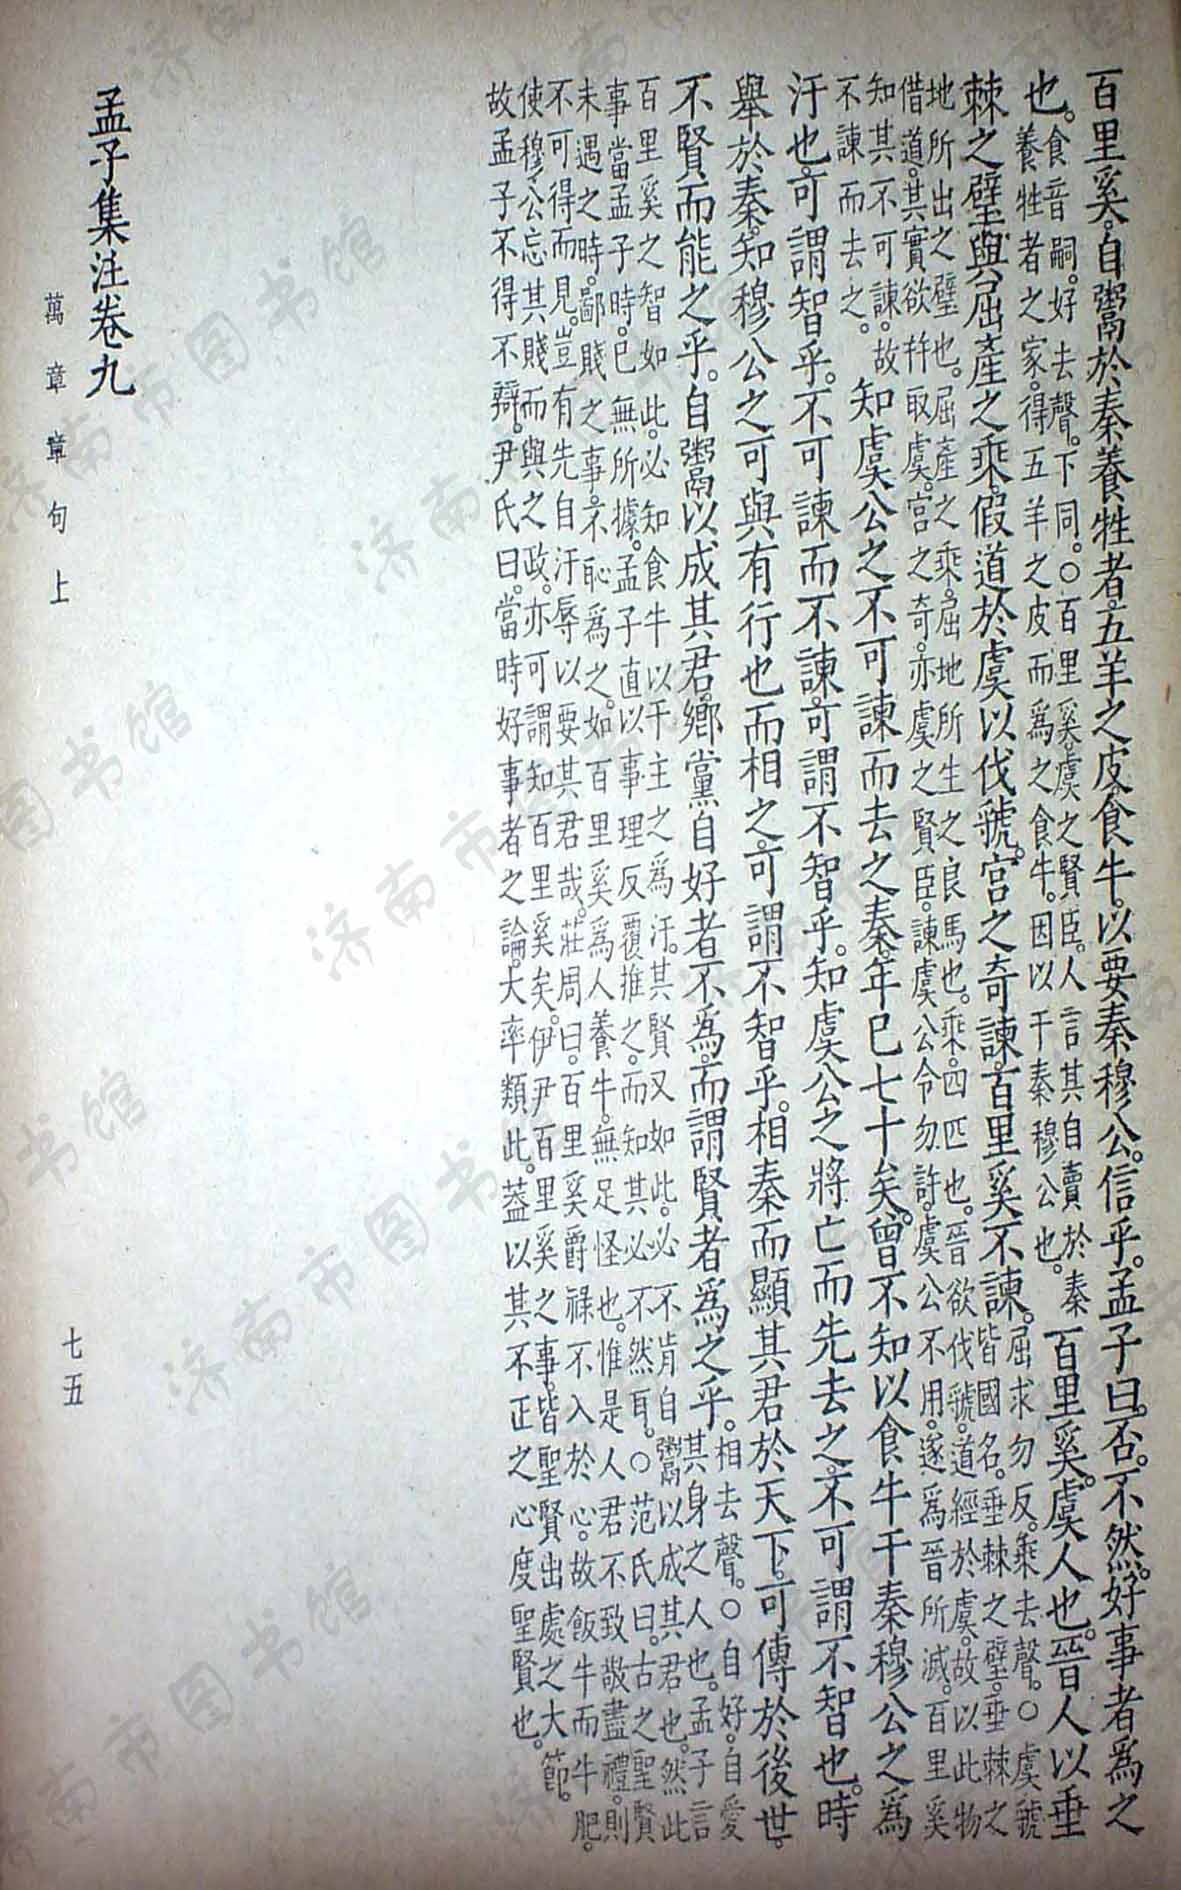 百里奚。自鬻於秦養牲者。五羊之皮。食牛。以要秦穆公。信乎。孟子曰。否。不然。好事者爲之
也。食音嗣。好去聲。下同。○百里奚。虞之賢臣。人言其自賣於秦養牲者之家。得五羊之皮而爲之食牛。因以干秦穆公也。百里奚。虞人也。晉人以垂
棘之璧。與屈產之乘。假道於虞以伐虢。宮之奇諫。百里奚不諫。屈求勿反。乘去聲。○虞虢皆國名。垂棘之璧。垂棘之
地所出之璧也。屈產之乘。屈地所生之良馬也。乘。四匹也。晉欲伐虢。道經於虞。故以此物
借道。其實欲幷取虞。宮之奇。亦虞之賢臣。諫虞公令勿許。虞公不用。遂爲晉所滅。百里奚
知其不可諫。故不諫而去之。知虞公之不可諫而去之秦。年已七十矣。曾不知以食牛干秦穆公之爲
汙也。可謂智乎。不可諫而不諫。可謂不智乎。知虞公之將亡而先去之。不可謂不智也。時
舉於秦。知穆公之可與有行也而相之。可謂不智乎。相秦而顯其君於天下。可傳於後世。
不賢而能之乎。自鬻以成其君。鄉黨自好者不爲。而謂賢者爲之乎。相去聲。○自好。自愛其身之人也。孟子言
百里奚之智如此。必知食牛以干主之爲汙。其賢又如此。必不肯自鬻以成其君也。然此
事當孟子時。已無所據。孟子直以事理反覆推之。而知其必不然耳。○范氏曰。古之聖賢
未遇之時。鄙賤之事。不恥爲之。如百里奚爲人養牛。無足怪也。惟是人君不致敬盡禮。則
不可得而見。豈有先自汙辱以要其君哉。莊周曰。百里奚爵祿不入於心。故飯牛而牛肥。
使穆公忘其賤而與之政。亦可謂知百里奚矣。伊尹百里奚之事。皆聖賢出處之大節。
故孟子不得不辯。尹氏曰。當時好事者之論。大率類此。蓋以其不正之心度聖賢也。
孟子集注卷九
萬章章句上
七五
济南市图书馆